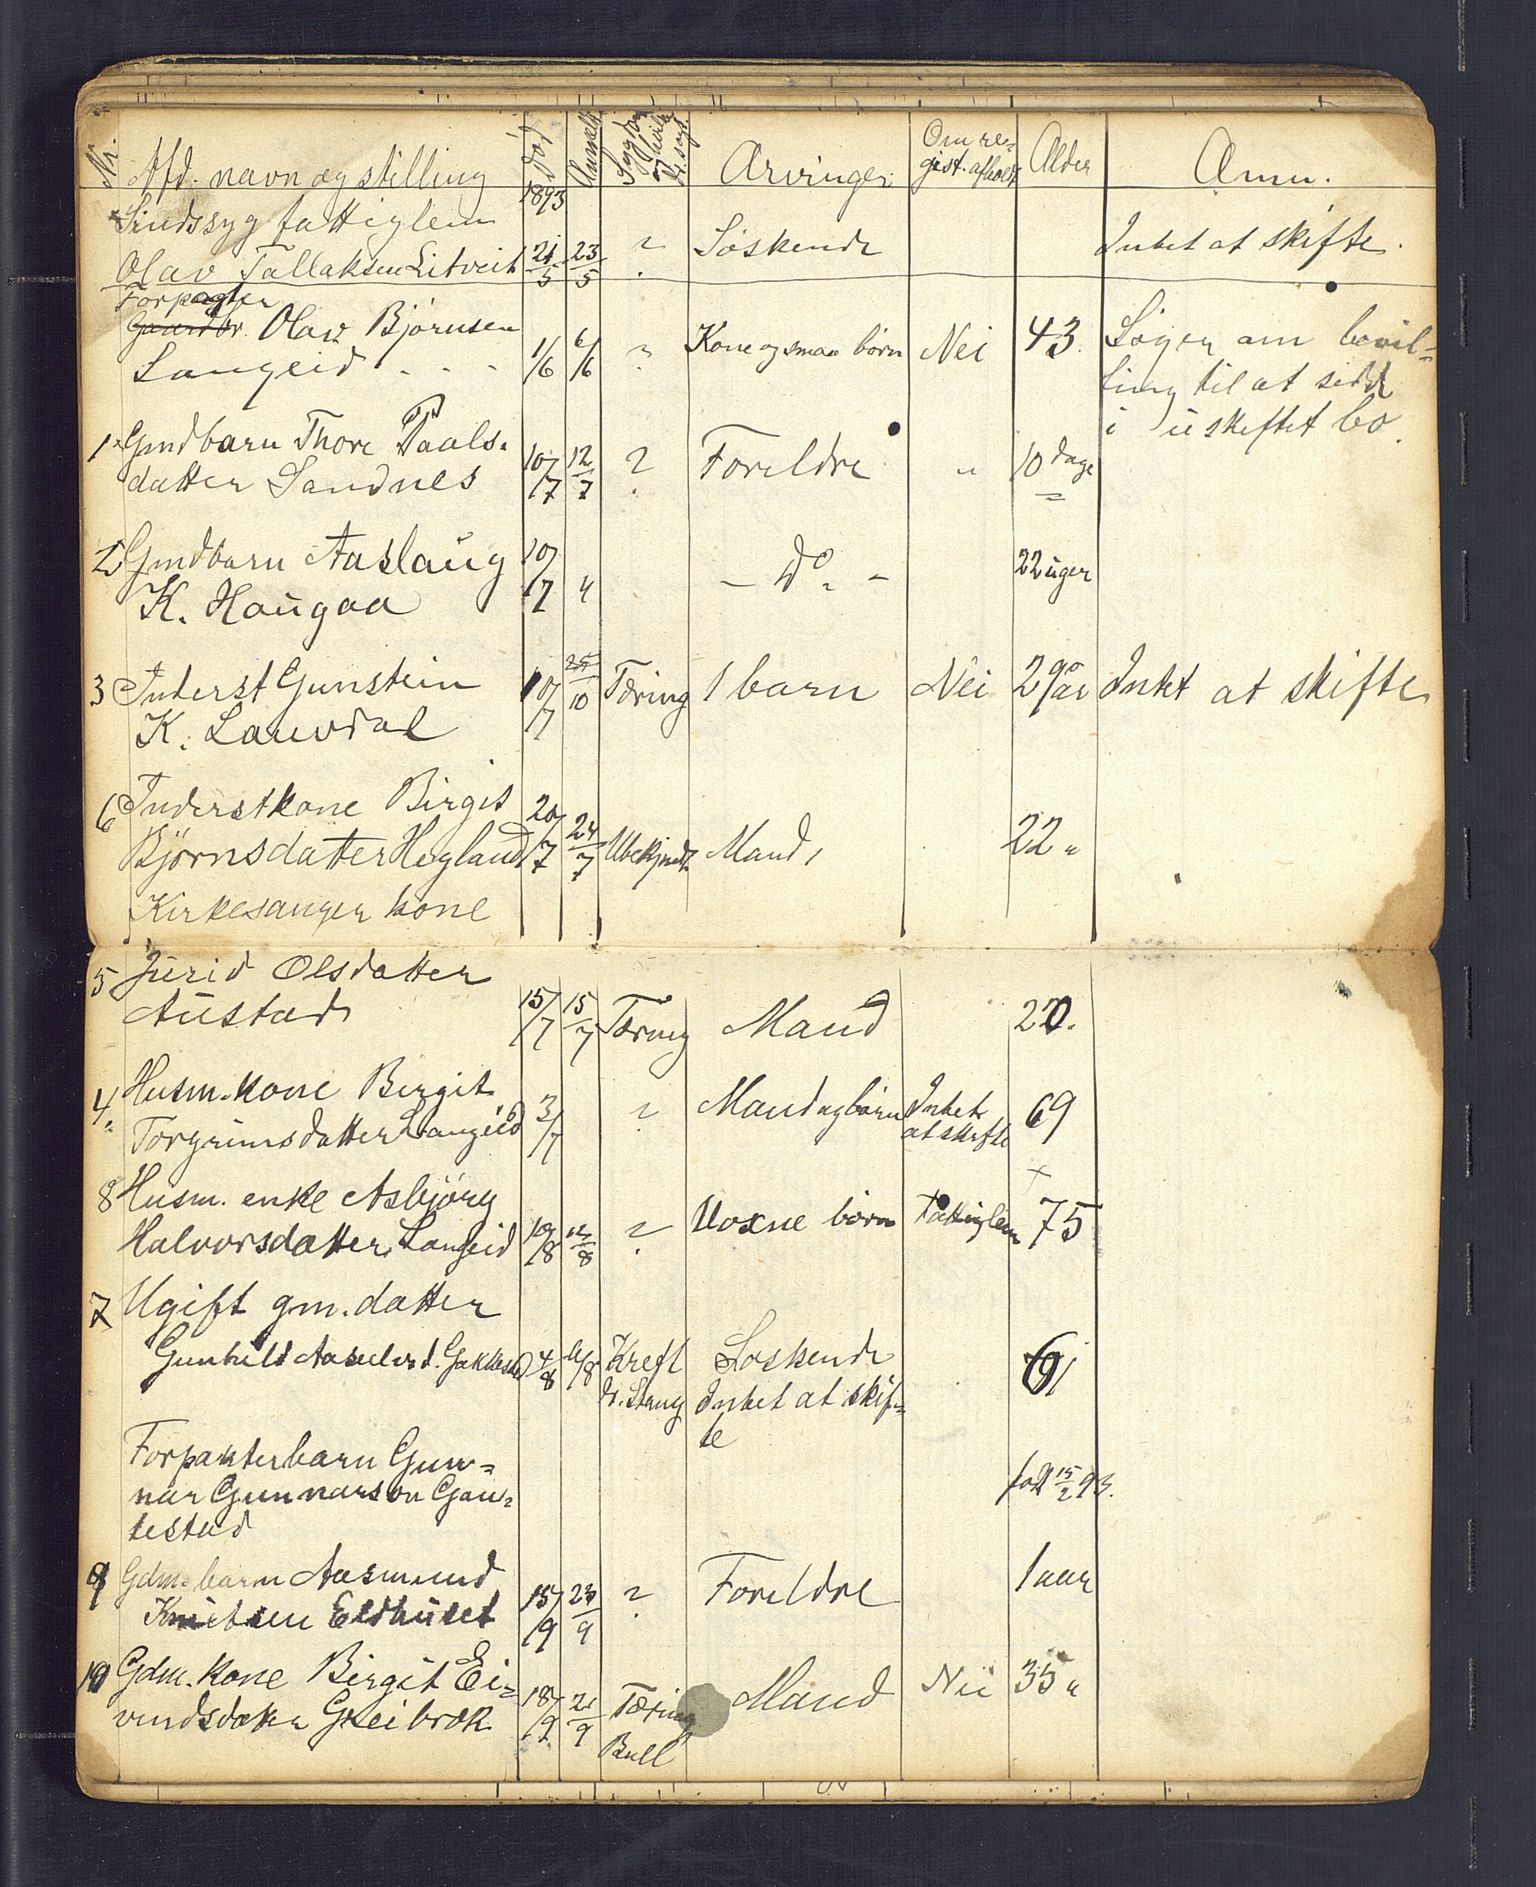 Nr. Afd. navn og stilling død 1893 Anmeldt Arvinger Om re-gist. afholdt Alder Anm.
Sindssyg fattiglem
Olav Tallaksen Litveit 21/5 23/5 ? Søskende Intet at skifte.
Forpagter
Olav Bjørnsen
Langeid . . . 1/6 6/6 ? Kone og smaa børn Nei 43. Søger om bevil-
ling til at sidde
i uskiftet bo.
1 Gmdbarn Thore Paals-
datter Sandnes 10/7 12/7 ? Foreldre " 10 dage
2 Gmdbarn Aaslaug
K. Haugaa 10/7 " – Do. – 22 uger
3 Inderst Gunstein
K. Lauvdal 10/7 25/10 Tæring 1 barn Nei 29 aar Intet at skifte
6 Inderstkone Birgit
Bjørnsdatter Hegland 20/7 24/7 Ubekjendt Mand, 22 "
Kirkesanger kone
5 Jurid Olsdatter
Austad 15/7 15/7 Tæring Mand 20.
4. Husm. kone Birgit
Torgrimsdatter Langeid 3/7 ? Mand og børn Intet
at skifte 69
8 Husm. enke Asbjørg
Halvorsdatter Langeid 10/8 12/8 ? Voxne børn Fattiglem 75
7 Ugift gm. datter
Gunhild 4/8 Kreft Søskende 61
dr. Stang Intet at skif-
te
Forpakterbarn Gun-
nar Gunnarson Gau-
testad født 15/2 93.
9 Gdm. barn Aasmund
Knutsen Eldhuset 15/9 23/9 ? Foreldre 1 aar
10 Gdm. kone Birgit Ei-
vindsdatter Greibrok 18/9 21/9 Tæring Mand Nei 35 "
Bull